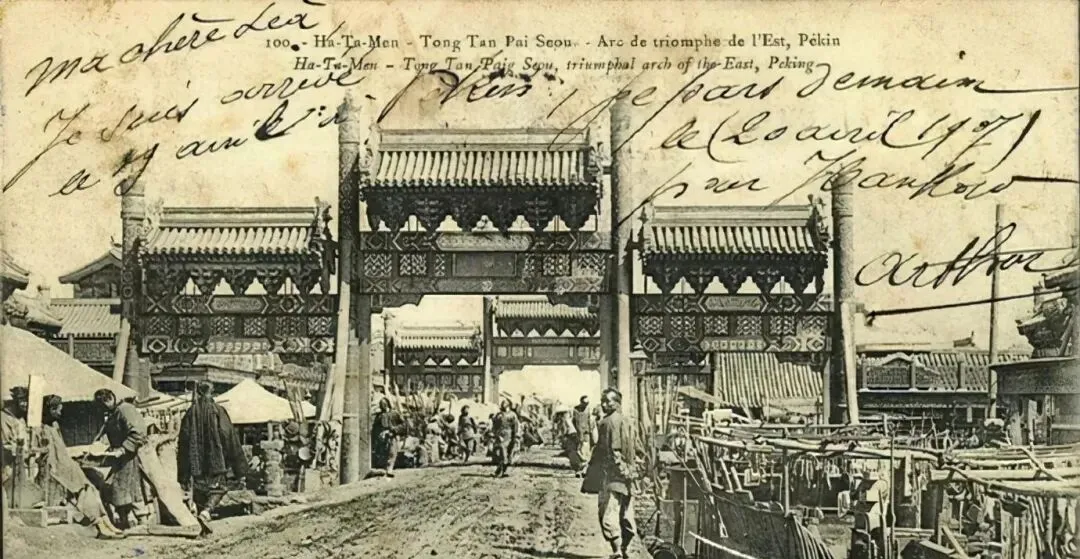 100. - Ha-Ta-Men - Tong Tan Pai Seou. - Arc de triomphe de l'Est, Pékin
Ha-Ta-Men - Tong Tan Paig Seou, triumphal arch of the East, Peking
Ma chère Léa
Je suis arrivé
le 19 avril à Pékin, je pars demain
le (20 avril 1907)
pour Hankow
Arthor